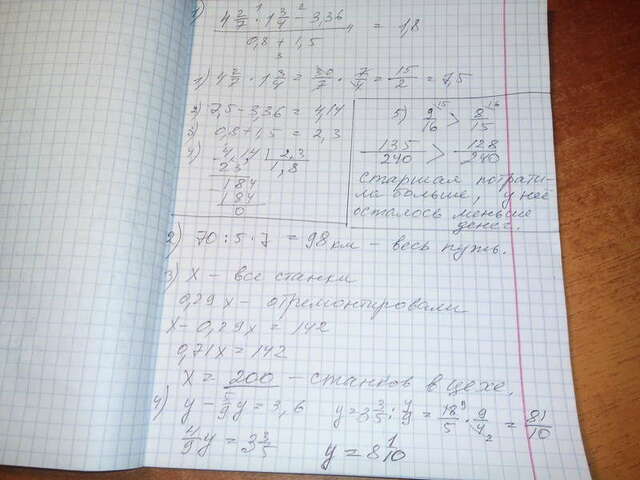 1) 4 2/7 · 1 3/4 - 3,36 / 0,8 + 1,5 = 1,8
1) 4 2/7 · 1 3/4 = 30/7 · 7/4 = 15/2 = 7,5
2) 7,5 - 3,36 = 4,14
3) 0,8 + 1,5 = 2,3
4) 4,14 | 2,3
23 | 1,8
184
184
0
5) 9/16 > 8/15
135/240 > 128/240
старшая потрати-
ла больше, у неё
осталось меньше
денег.
2) 70 : 5 · 7 = 98 км - весь путь.
3) x - все станки
0,29x - отремонтировали
x - 0,29x = 142
0,71x = 142
x = 200 - станков в цехе.
4) y - 5/9 y = 3,6
4/9 y = 3 3/5
y = 3 3/5 : 4/9 = 18/5 · 9/4 = 81/10
y = 8 1/10